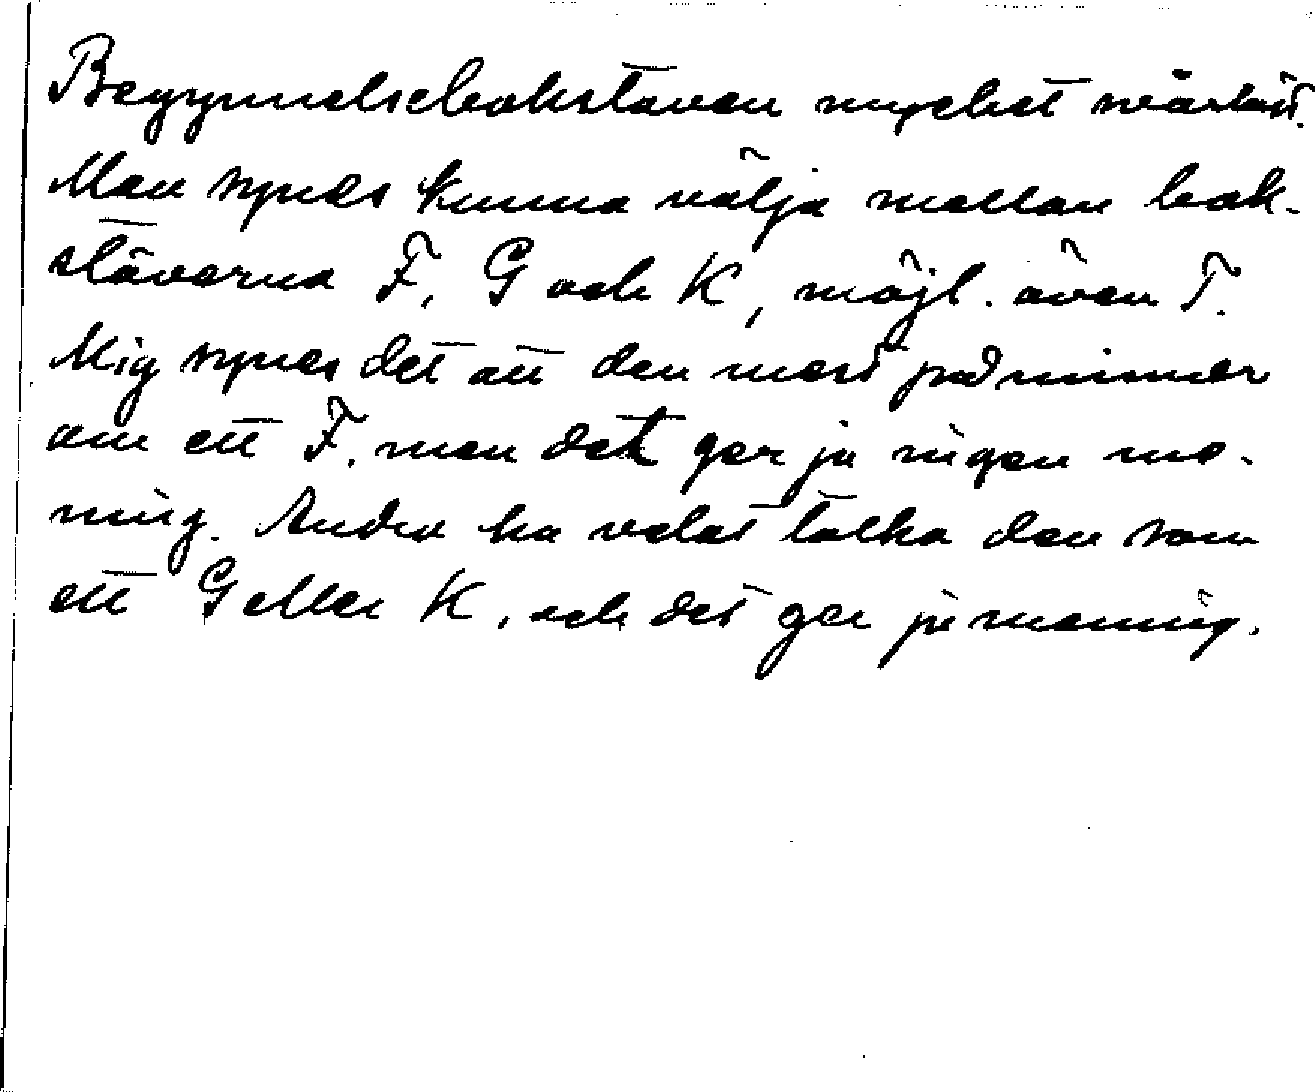 Begynnelsebokstaven mycket svårläst.
Man synes kunna välja mellan bok-
stäverna F, G och K, möjl. även T.
Mig synes det att den mest påminner
om ett F, men det ger ju ingen me-
ning. Andra ha velat tolka den som
ett G eller K, och det ger ju mening.